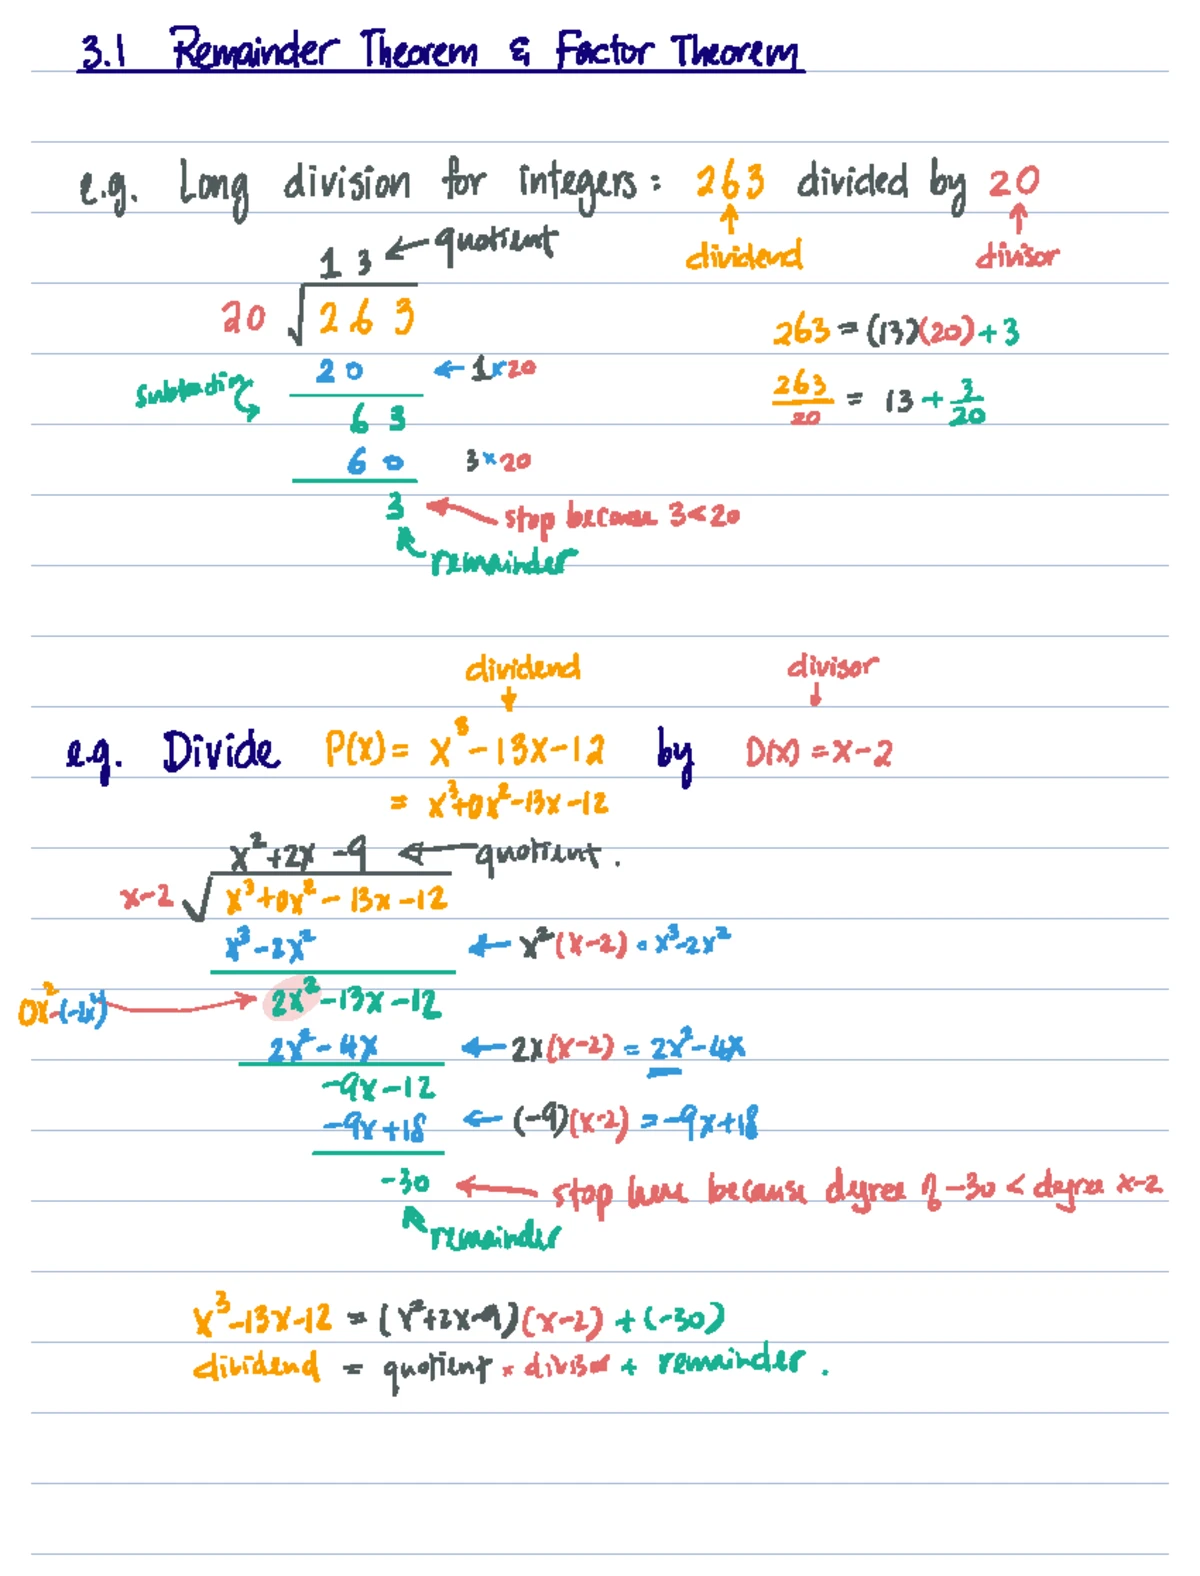 3.1 Remainder Theorem & Factor Theorem
e.g. Long division for integers: 263 divided by 20
dividend divisor
1 3 ← quotient
20 √ 2 6 3
263 = (13)(20) + 3
2 0 ← 1×20
subtracting
263/20 = 13 + 3/20
6 3
6 0 3×20
3 stop because 3 < 20
remainder
dividend divisor
e.g. Divide P(x) = x³ - 13x - 12 by D(x) = x - 2
= x³+0x²-13x-12
x²+2x-9 ← quotient.
x-2 √ x³+0x²-13x-12
x³-2x² ← x²(x-2) = x³-2x²
0x²-(-2x²) → 2x²-13x-12
2x²-4x ← 2x(x-2) = 2x²-4x
-9x-12
-9x+18 ← (-9)(x-2) = -9x+18
-30 ← stop here because degree of -30 < degree x-2
remainder
x³-13x-12 = (x²+2x-9)(x-2) + (-30)
dividend = quotient × divisor + remainder.